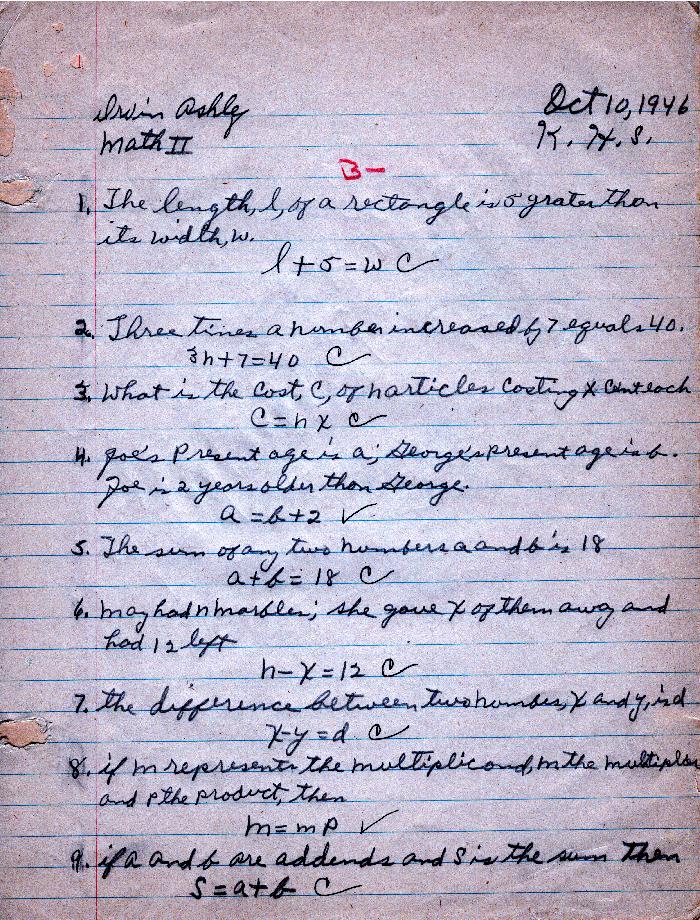 Irvin Ashly
Oct 10, 1946
Math II
K. H. S.
B-
1. The length, l, of a rectangle is 5 grater than
its width, w.
l + 5 = w C
2. Three times a number increased by 7 equals 40.
3n + 7 = 40 C
3. What is the cost, C, of n articles costing x cent each
C = n x C
4. Joe's Present age is a; George's present age is b.
Joe is 2 years older than George.
a = b + 2 ✓
5. The sum of any two numbers a and b is 18
a + b = 18 C
6. may had n marbles; she gave x of them away and
had 12 left
n - x = 12 C
7. the difference between two numbes, x and y, is d
x - y = d C
8. if m represents the multiplicand, m the multiplier
and p the product, then
m = mp ✓
9. if a and b are addends and S is the sum then
S = a + b C